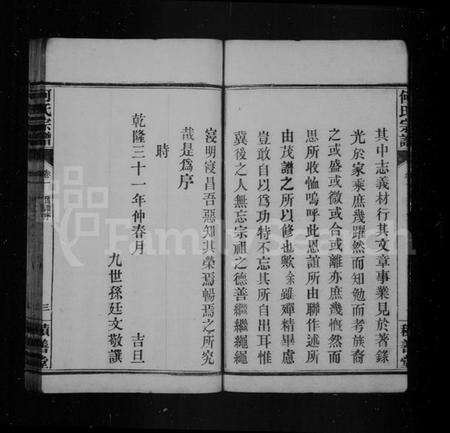 何氏宗譜
其中志義材行其文章事業見於著錄
光於家乘庶幾躍然而知勉而考族裔
之或盛或微或合或離亦庶幾愾然而
思所收恤嗚呼此恩誼所由聯作述所
由茂譜之所以修也歟余雖殫精畢慮
豈敢自以為功特不忘其所自出耳惟
冀後之人無忘宗祖之德善繼繼繩繩
積善堂
寖明寖昌吾惡知其榮焉暢焉之所究
哉是為序
時
乾隆三十一年仲春月 吉旦
九世孫廷文敬譔
何氏宗譜
卷一
三
積善堂
FamilySearch